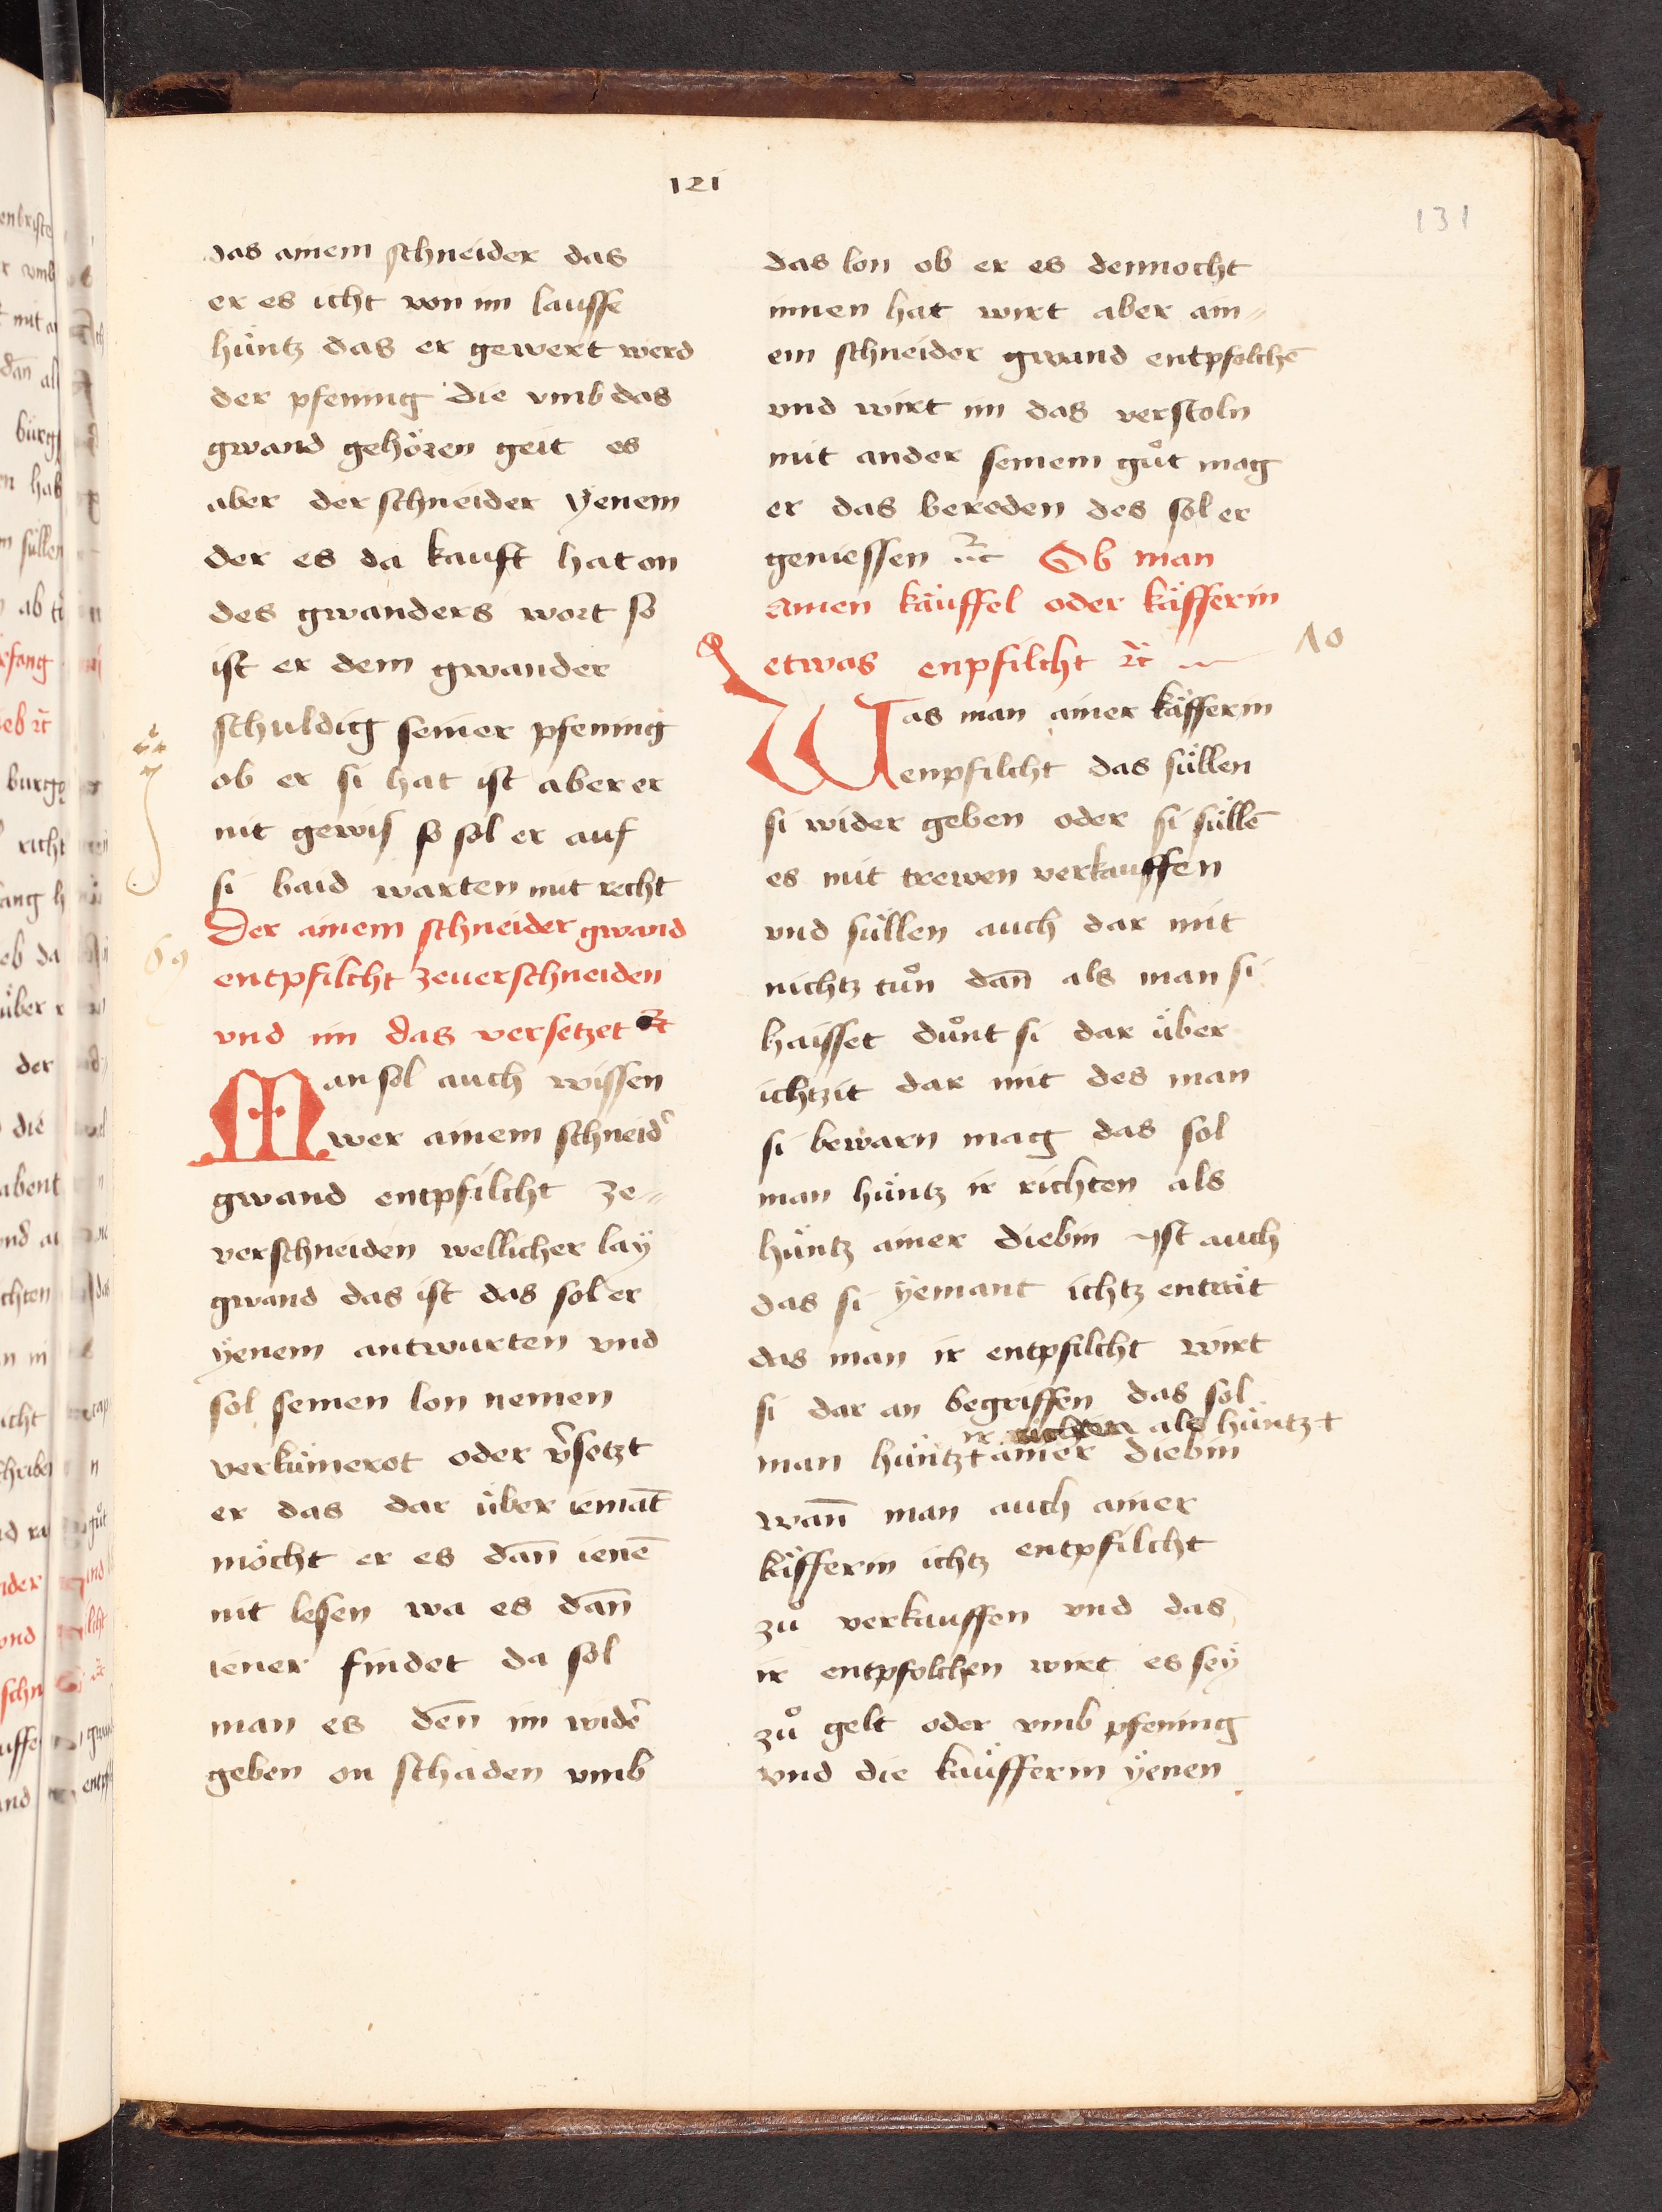 121
131
das ainem schneider das
er es icht von im lausse
hüntz das er gewert werd
der pfening die vmb das
gwand gehören geit es
aber der schneider ÿenem
der es da kauft hat on
des gwanders wort so
ist er dem gwander
schuldig seiner pfening
ob er si hat ist aber er
nit gewis so sol er auf
si baid warten mit recht
Der ainem schneider gwand
69
entpfilcht zeuerschneiden
vnd im das versetzet ꝛc̄
Man sol auch wissen
wer ainem schneid̉
gwand entpfilcht ze=
verschneiden wellicher laÿ
gwand das ist das sol er
ÿenem antwurten vnd
sol seinen lon nemen
verkümerot oder v̉setzt
er das dar über iemāt
möcht er es dan̄ ienē
nit lesen wa es dan̄
iener findet da sol
man es den̄ im wid̉e
geben on schaden vmb
das lon ob er es dennocht
innen hat wirt aber ain=
em schneider gwand entpfolchē
vnd wirt im das verstoln
mit ander seinem gůt mag
er das bereden des sol er
geniessen ꝛc Ob man
ainen käuffel oder käfferin
etwas enpfilcht ꝛc̄
70
Was man ainer käfferin
enpfilcht das süllen
si wider geben oder si süllē
es mit trewen verkauffen
vnd süllen auch dar mit
nichtz tůn dan̄ als man si
haisset důnt si dar über
ichtzit dar mit des man
si bewarn mag das sol
man hüntz ir richten als
hüntz ainer diebin Ist auch
das si ÿemant ichtz enträt
das man ir entpfilcht wirt
si dar an begriffen das sol
ir richten als hüntz +
man hüntz + ainer diebin
wan̄ man auch ainer
käfferin ichtz entpfilcht
zů verkauffen vnd das
ir entpfolchen wirt es seÿ
zů gelt oder vmb pfening
vnd die käufferin ÿenen